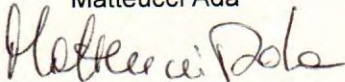 Matteucci Ada
Matteucci Ada